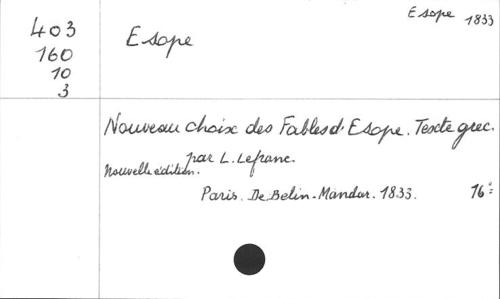 Esope 1833
403
160
10
3
Esope
Nouveau choix des Fables d'Esope. Texte grec.
par L. Lefranc.
Nouvelle édition.
Paris. De Belin-Mandar. 1833. 16°